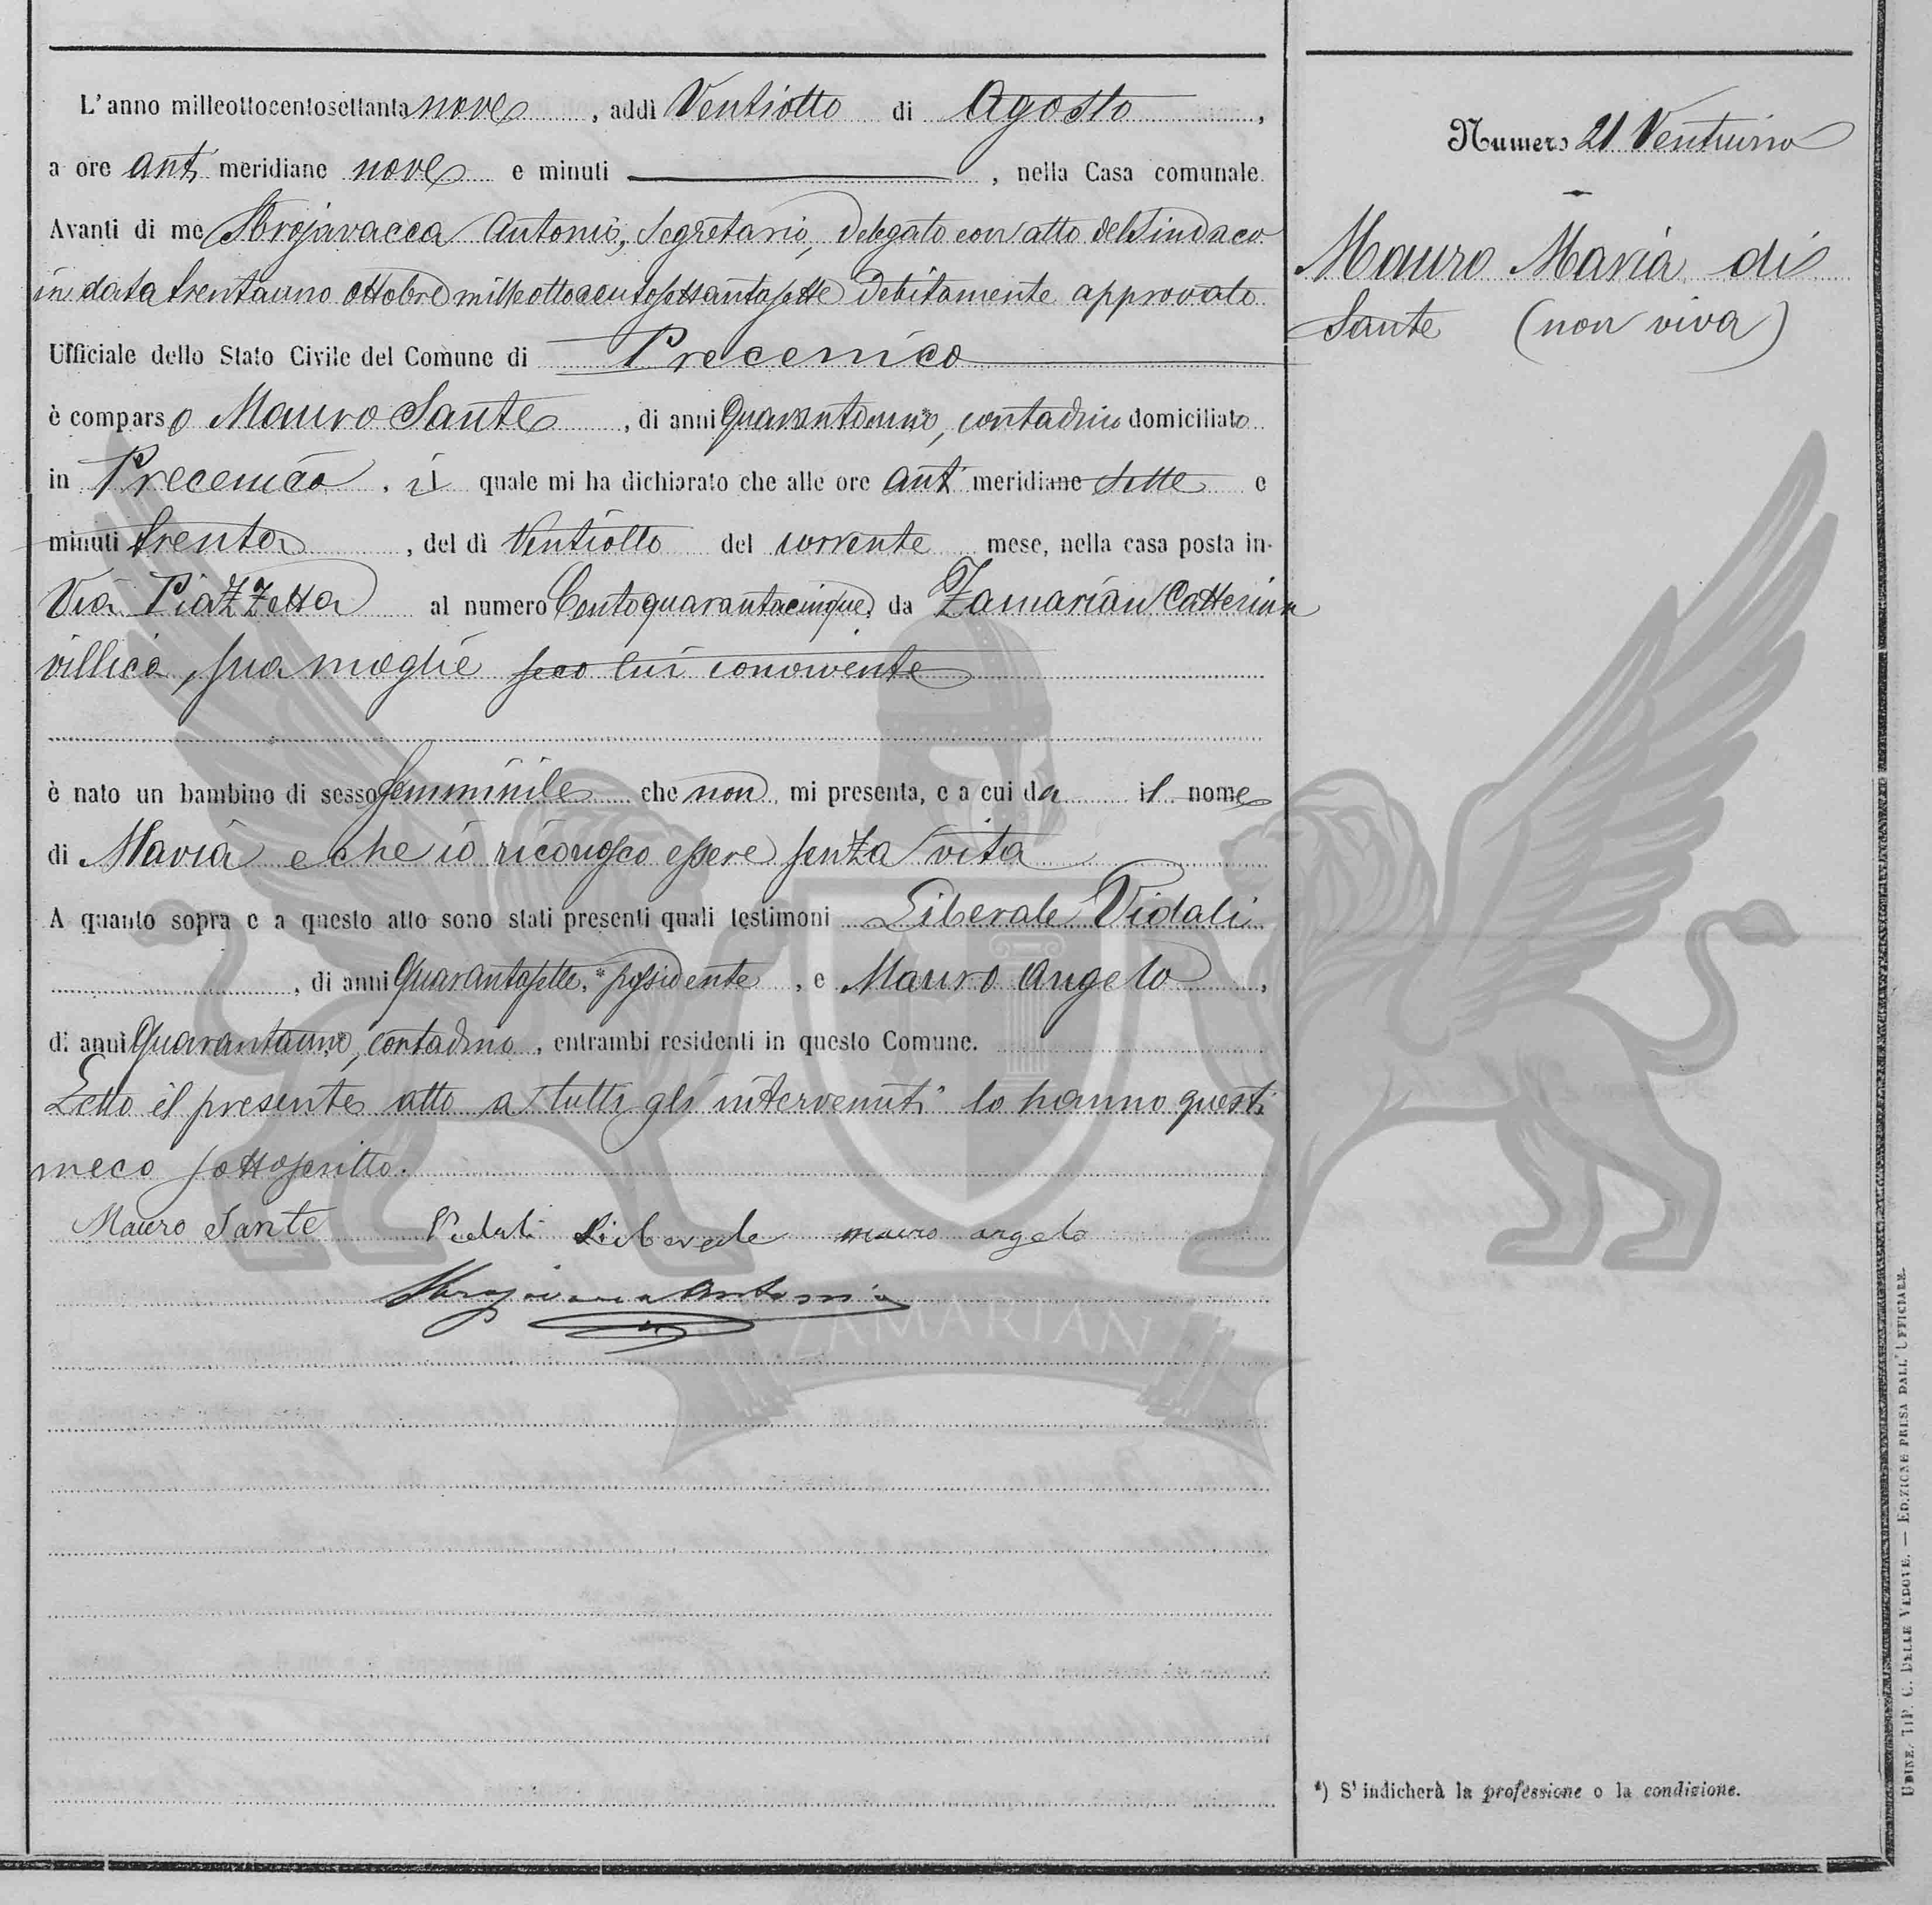 L'anno milleottocentosettantanove, addì Ventiotto di Agosto,
a ore ant. meridiane nove e minuti ———, nella Casa comunale.
Avanti di me Sbrojavacca Antonio, Segretario, Delegato con atto del Sindaco
in data trentauno ottobre milleottocentosettantasette debitamente approvato
Ufficiale dello Stato Civile del Comune di Precenico
è comparso Mauro Sante, di anni Quarantauno, contadino domiciliato
in Precenico, il quale mi ha dichiarato che alle ore ant. meridiane sette e
minuti trenta, del dì Ventiotto del corrente mese, nella casa posta in
Via Piazzetta al numero Centoquarantacinque, da Zamarian Catterina
villica, sua moglie seco lui convivente
è nato un bambino di sesso femminile che non mi presenta, e a cui da il nome
di Maria e che io riconosco essere senza vita
A quanto sopra e a questo atto sono stati presenti quali testimoni Liberale Vidali
, di anni Quarantasette, * possidente, e Mauro Angelo,
di anni Quarantauno, contadino, entrambi residenti in questo Comune.
Letto il presente atto a tutti gli intervenuti lo hanno questi
meco sottoscritto.
Mauro Sante Vidali Liberale mauro angelo
Sbrojavacca Antonio
ZAMARIAN
Numero 21 Ventuno
Mauro Maria di
Sante (non viva)
*) S'indicherà la professione o la condizione.
UDINE. TIP. C. DELLE VEDOVE. — EDIZIONE PRESA DALL'UFFICIALE.